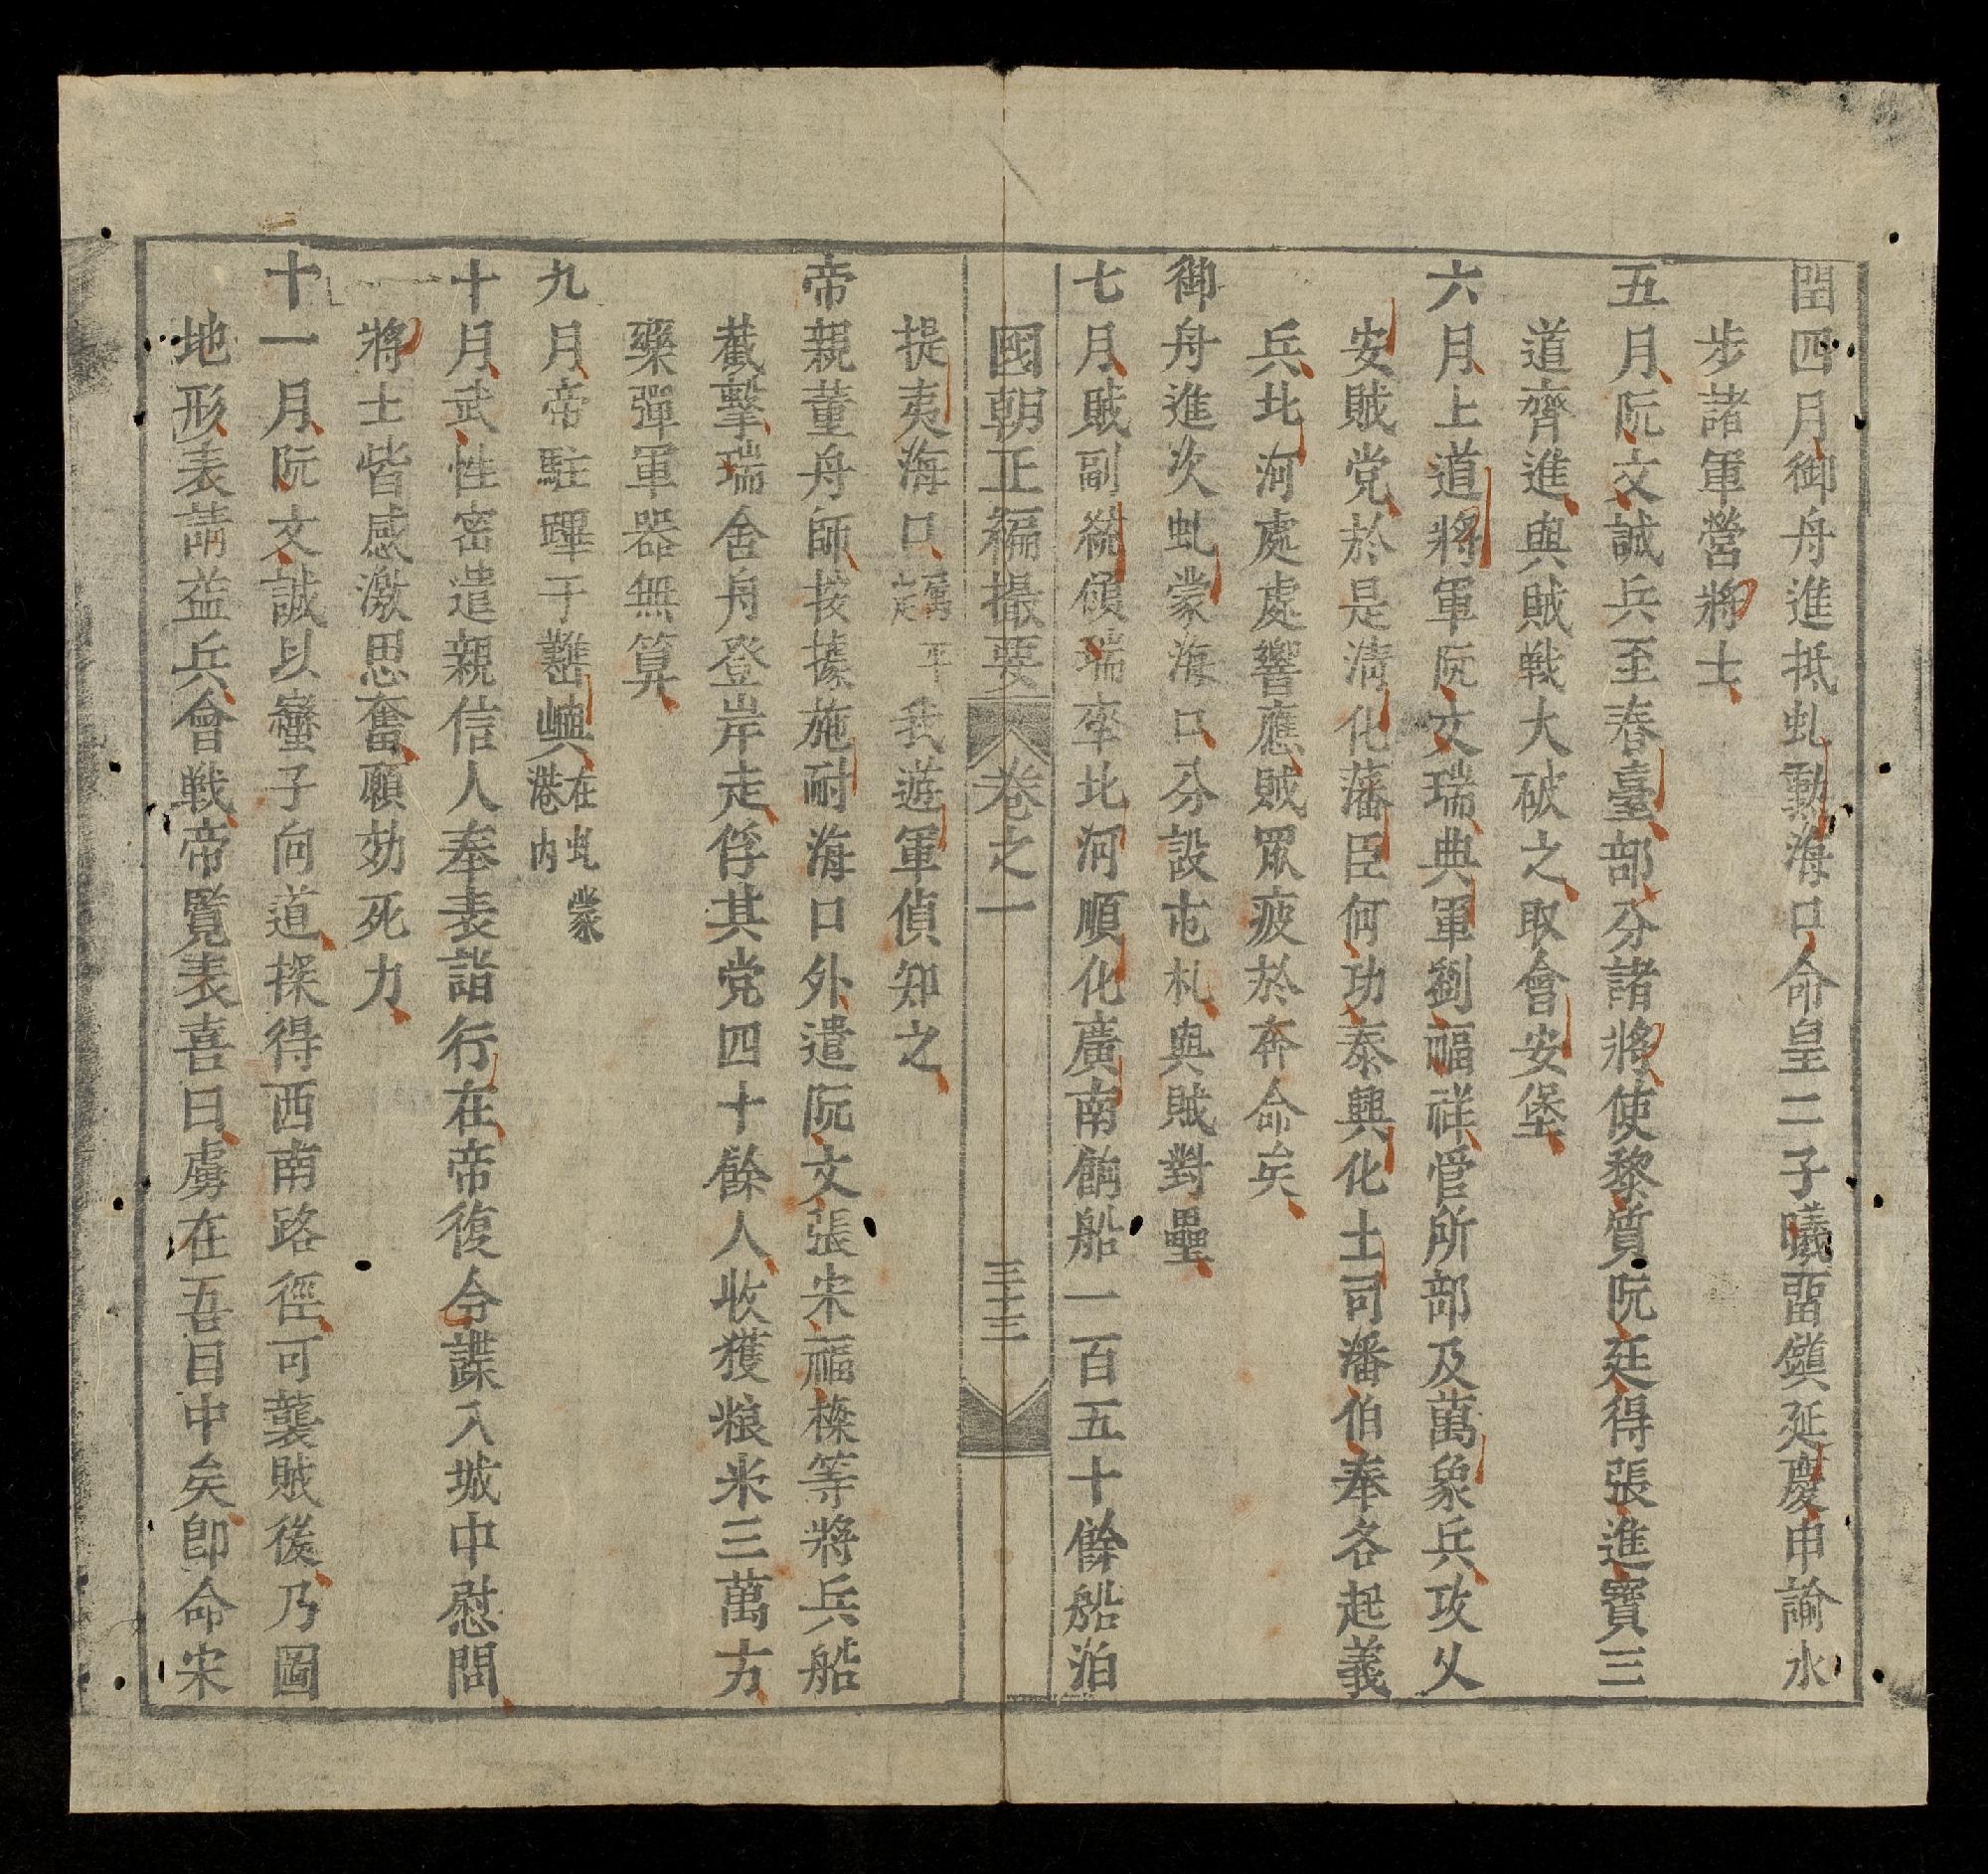 閏四月御舟進抵虬勳海口命皇二子㬢畱鎮延慶申諭水
步諸軍營將士
五月阮文誠兵至春臺部分諸將使黎質阮廷得張進寶三
道齊進與賊戰大破之取會安堡
六月上道將軍阮文瑞典軍劉福祥管所部及萬象兵攻乂
安賊党於是清化藩臣何功泰興化土司潘伯奉各起義
兵北河處處響應賊眾疲於奔命矣
御舟進次虬蒙海口分設屯札與賊對壘
七月賊副統領瑞率北河順化廣南餉船一百五十餘船泊
國朝正編撮要 卷之一 三十三
提夷海口 我遊軍偵知之
帝親董舟師按據施耐海口外遣阮文張宋福樑等將兵船
截擊瑞舍舟登岸走俘其党四十餘人收獲粮米三萬方
藥彈軍器無算
九月帝駐蹕于難嶼在虬蒙港內
十月武性密遣親信人奉表詣行在帝復令諜入城中慰問
將士皆感激思奮願効死力
十一月阮文誠以蠻子向道探得西南路徑可襲賊後乃圖
地形表請益兵會戰帝覽表喜曰虜在吾目中矣卽命宋